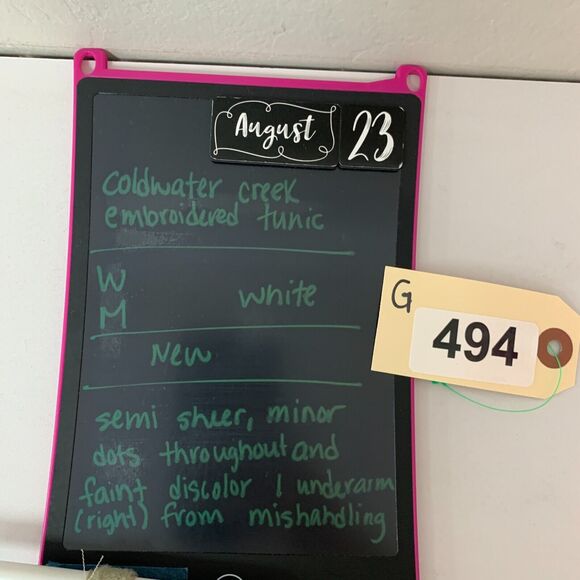 August 23
Coldwater creek
embroidered tunic
W
white
M
New
G
494
semi sheer, minor
dots throughout and
faint discolor 1 underarm
(right) from mishandling